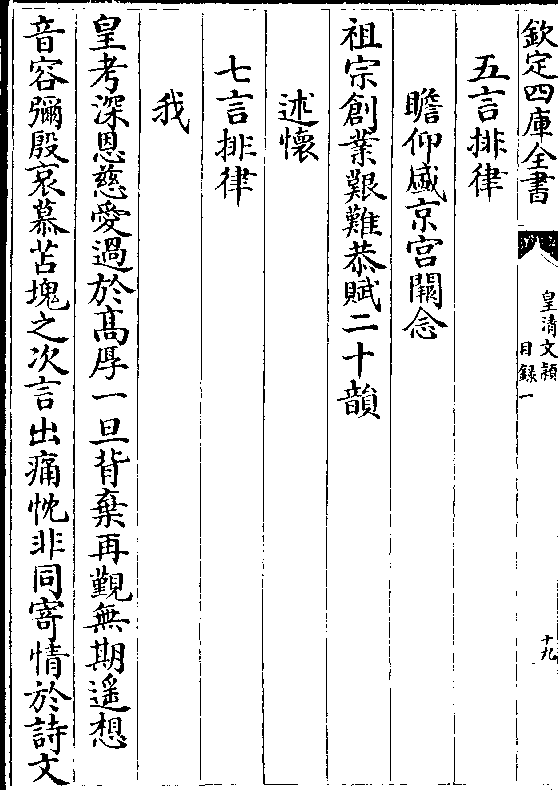 欽定四庫全書
皇清文穎
目録一
十九
五言排律
瞻仰盛京宮闕念
祖宗創業艱難恭賦二十韻
述懷
七言排律
我
皇考深恩慈愛過於高厚一旦背棄再覲無期遥想
音容彌殷哀慕苫塊之次言出痛忱非同寄情於詩文